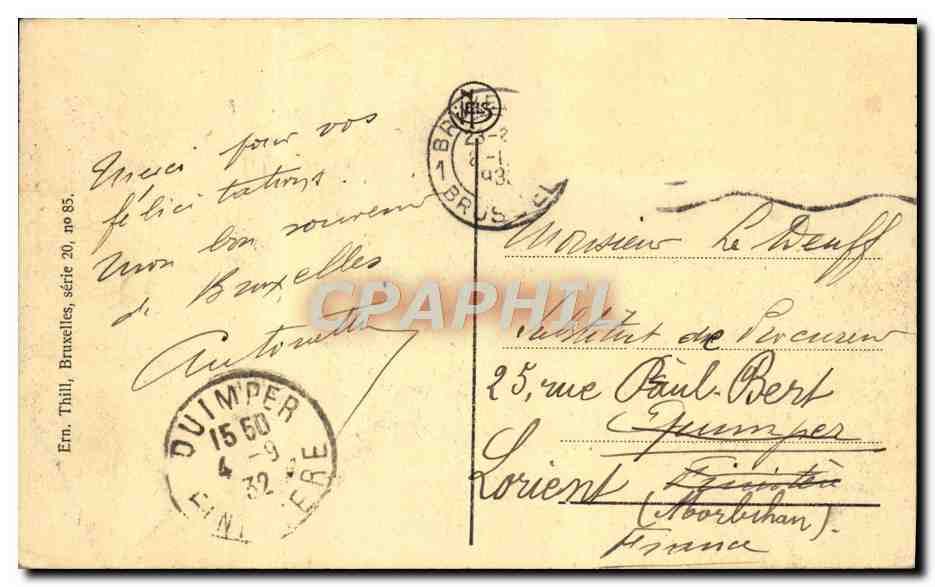 Ern. Thill, Bruxelles, série 20, no 85.
Merci pour vos
félicitations.
Mon bon souvenir
de Bruxelles
Antoinette
NELS
1 BRUSSEL
CPAPHIL
Monsieur Le Deuff
Substitut de Procureur
25, rue Paul-Bert
Quimper
Lorient Finistère
(Morbihan).
France
QUIMPER
15 50
4 -9
32
FINISTERE